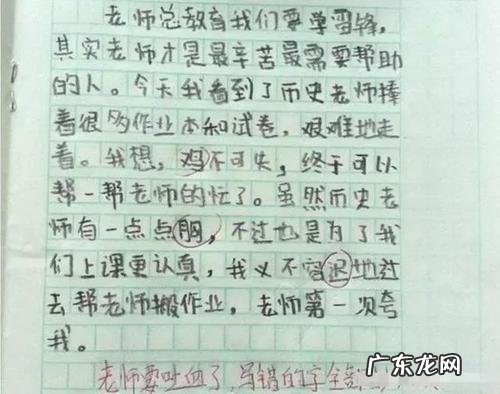 老师总教育我们要学雷锋,
其实老师才是最辛苦最需要帮助
的人。今天我看到了历史老师捧
着很多作业本和试卷，艰难地走
着。我想，鸡不可失，终于可以
帮一帮老师的忙了。虽然历史老
师有一点点胸，不过也是为了我
们上课更认真，我义不容迟地过
去帮老师搬作业，老师第一次夸
我。
老师要吐血了，写错的字全部
广东龙网